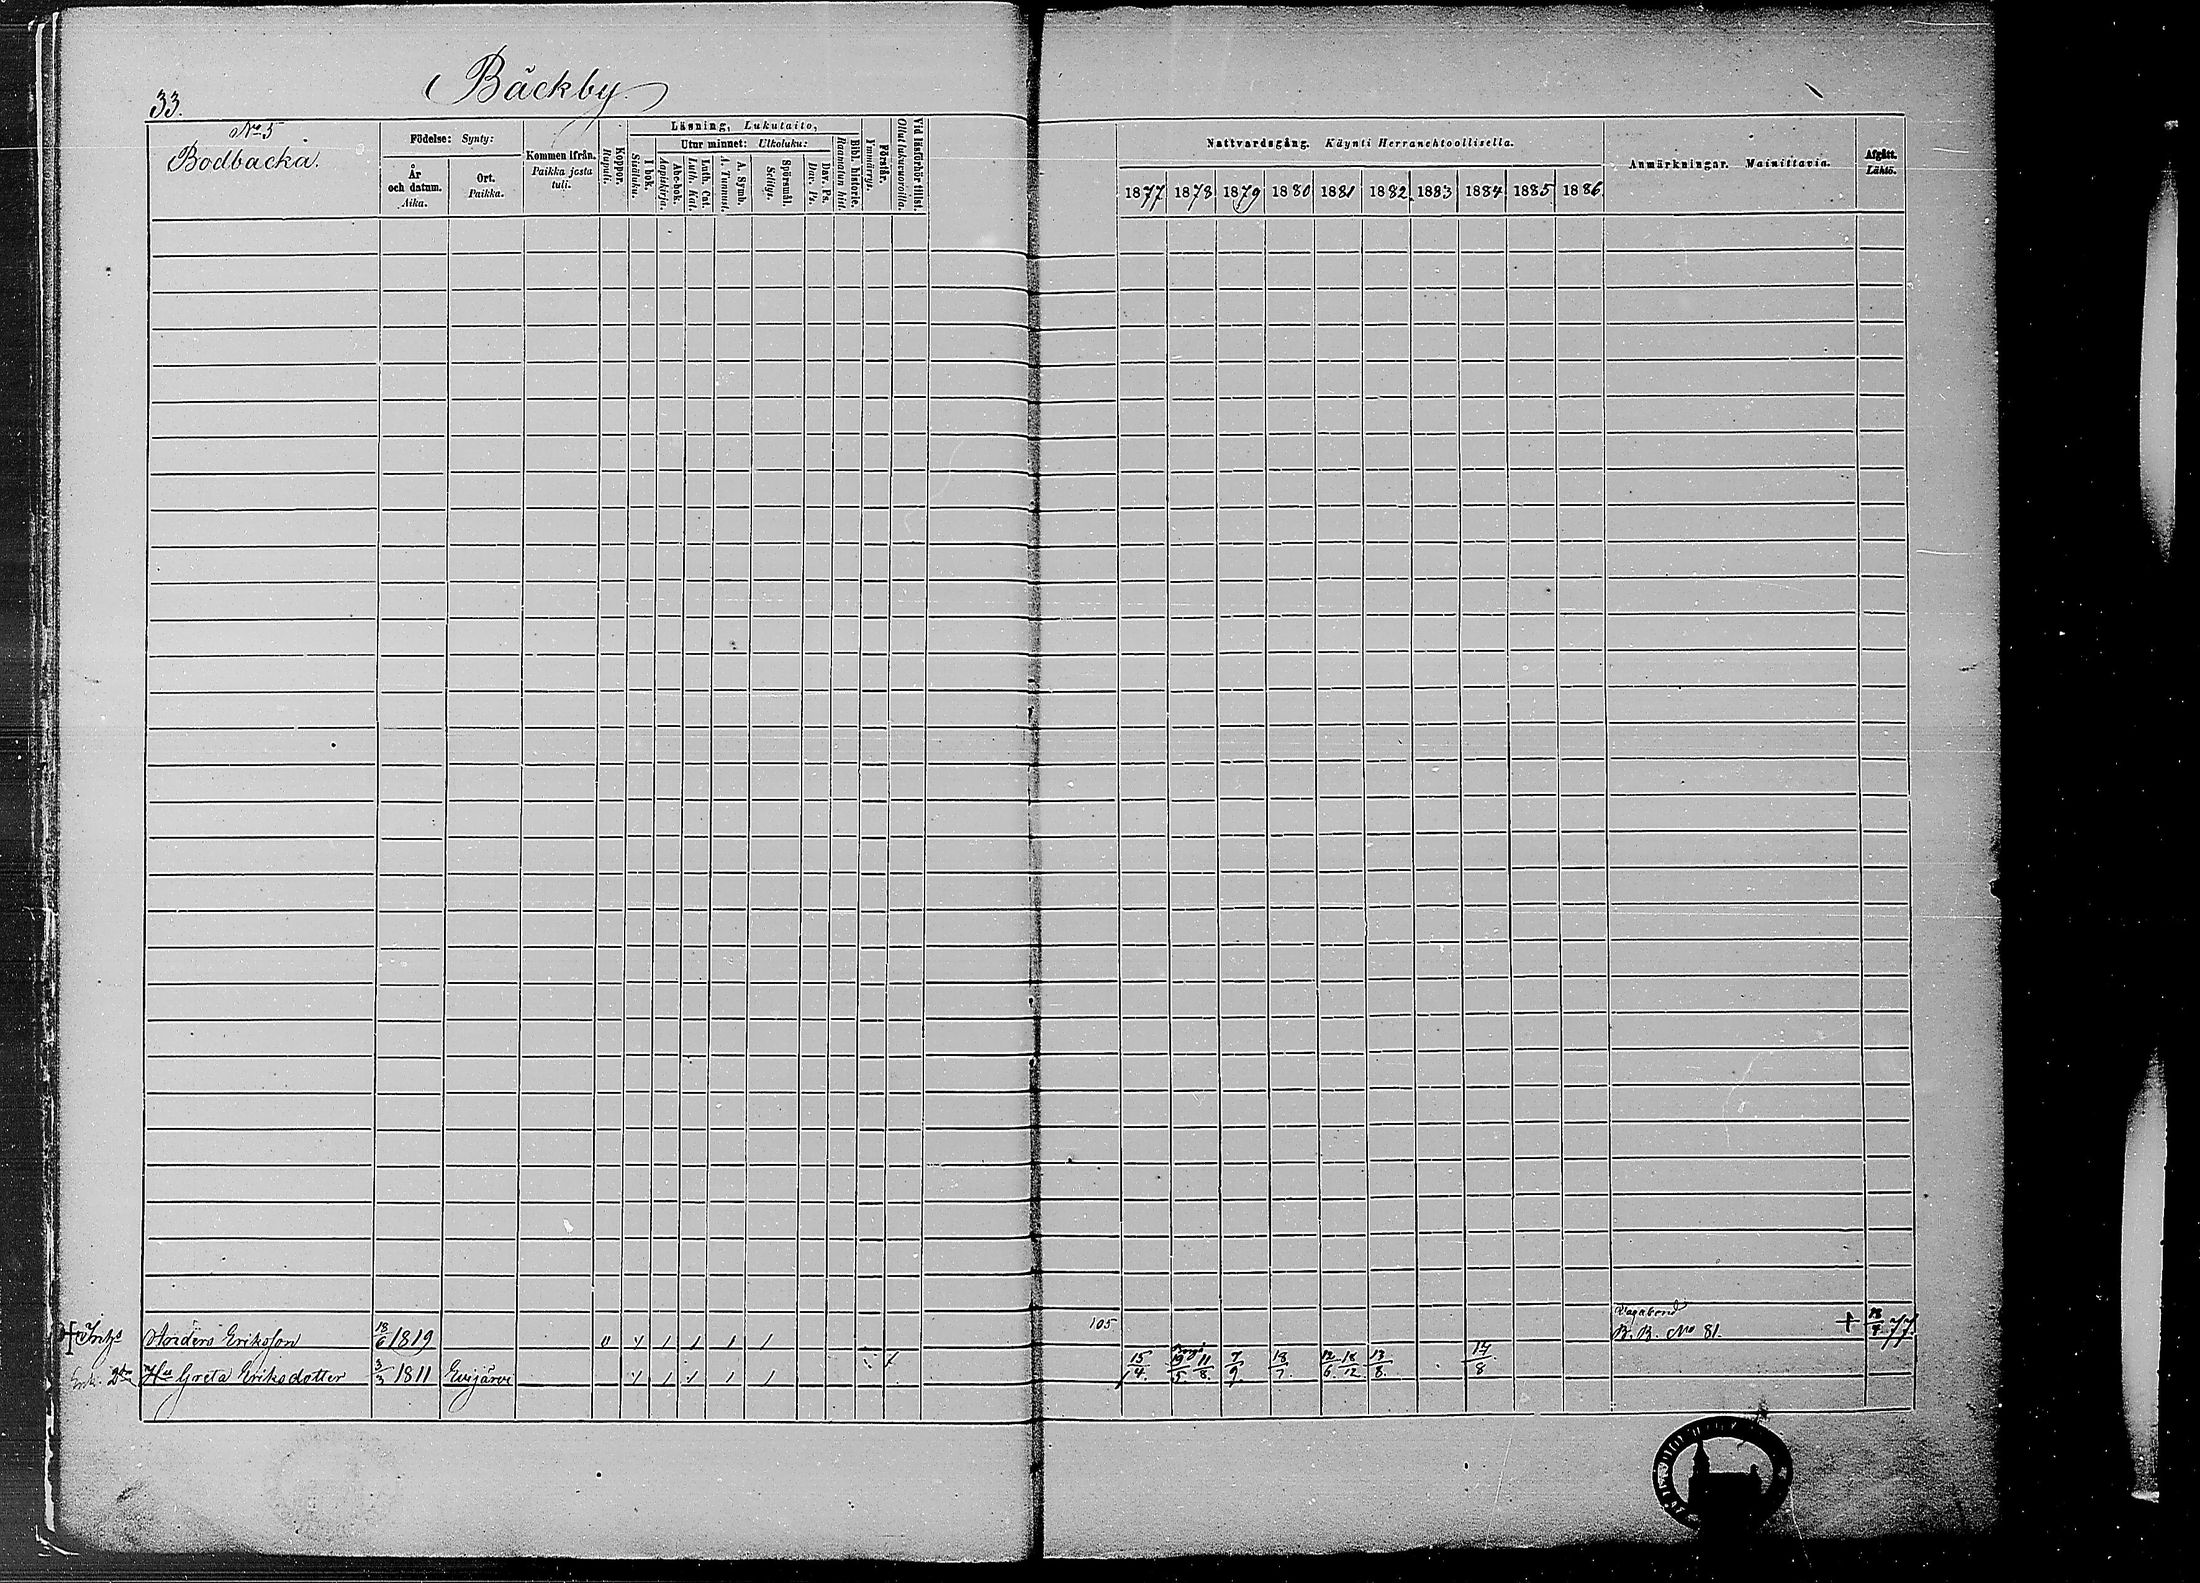 33.
Bäckby
No 5
Bodbacka.
Födelse: Synty:
År och datum. Aika.
Ort. Paikka.
Kommen ifrån. Paikka josta tuli.
Koppor. Rupuli.
Läsning, Lukutaito,
Sisäluku. I bok.
Utur minnet: Ulkoluku:
Aapiskirja. Abc-bok.
Luth. Kat. Luth. Cat.
A. Tunnust. A. Symb.
Selityr. Spörsmål.
Dav. Ps. Dav. Ps.
Raamatun hist. Bibl. historie.
Ymmärrys. Förstår.
Ollut lukuvuoroilla. Vid läsförhör tillst.
Nattvardsgång. Käynti Herranehtoollisella.
1877 1878 1879 1880 1881 1882 1883 1884 1885 1886
Anmärkningar. Mainittavia.
Afgått. Lähtö.
Anders Eriksson 18/6 1819 105 Vagabond B. B. No 81. + 77.
Hu Greta Eriksdotter 3/3 1811 Evijärvi 15/4 19/5 11/8 7/9 18/7 12/6 18/12 13/8 17/8